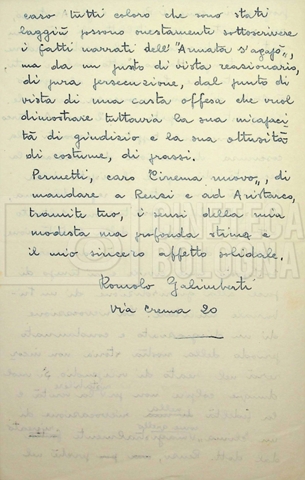 caso tutti coloro che sono stati
laggiù possono onestamente sottoscrivere
i fatti narrati dell'"Armata s'agapò",
ma da un punto di vista reazionario,
di pura persecuzione, dal punto di
vista di una casta offesa che vuol
dimostrare tuttavia la sua incapaci
tà di giudizio e la sua ottusità
di costume, di prassi.
Permetti, caro "Cinema nuovo", di
mandare a Renzi e ad Aristarco,
tramite tuo, i sensi della mia
modesta ma profonda stima e
il mio sincero affetto solidale.
Romolo Galimberti
Via Crema 20